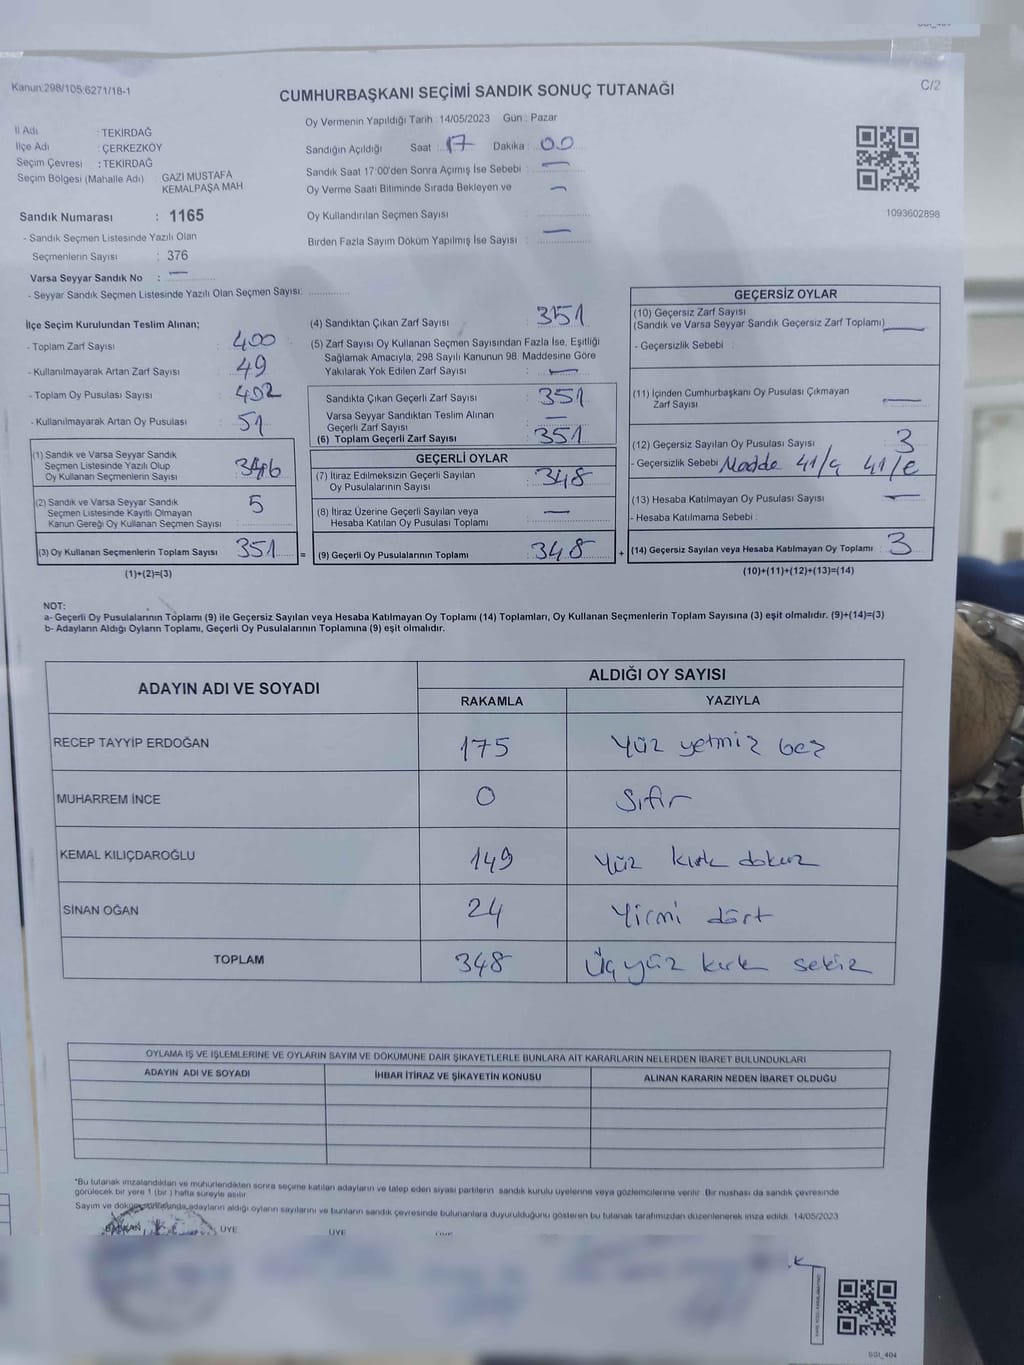 Kanun:298/105;6271/18-1
C/2
CUMHURBAŞKANI SEÇİMİ SANDIK SONUÇ TUTANAĞI
İl Adı : TEKİRDAĞ
İlçe Adı : ÇERKEZKÖY
Seçim Çevresi : TEKİRDAĞ
Seçim Bölgesi (Mahalle Adı) : GAZI MUSTAFA
KEMALPAŞA MAH.
Sandık Numarası : 1165
- Sandık Seçmen Listesinde Yazılı Olan
Seçmenlerin Sayısı : 376
Varsa Seyyar Sandık No : —
- Seyyar Sandık Seçmen Listesinde Yazılı Olan Seçmen Sayısı: ............
Oy Vermenin Yapıldığı Tarih : 14/05/2023 Gün : Pazar
Sandığın Açıldığı Saat : 17 Dakika : 00
Sandık Saat 17:00'den Sonra Açımış İse Sebebi : —
Oy Verme Saati Bitiminde Sırada Bekleyen ve —
Oy Kullandırılan Seçmen Sayısı
Birden Fazla Sayım Döküm Yapılmış İse Sayısı : —
1093602898
İlçe Seçim Kurulundan Teslim Alınan;
- Toplam Zarf Sayısı : 400
- Kullanılmayarak Artan Zarf Sayısı : 49
- Toplam Oy Pusulası Sayısı : 402
- Kullanılmayarak Artan Oy Pusulası : 51
(1) Sandık ve Varsa Seyyar Sandık
Seçmen Listesinde Yazılı Olup
Oy Kullanan Seçmenlerin Sayısı : 346
(2) Sandık ve Varsa Seyyar Sandık
Seçmen Listesinde Kayıtlı Olmayan
Kanun Gereği Oy Kullanan Seçmen Sayısı : 5
(3) Oy Kullanan Seçmenlerin Toplam Sayısı : 351 =
(1)+(2)=(3)
(4) Sandıktan Çıkan Zarf Sayısı : 351
(5) Zarf Sayısı Oy Kullanan Seçmen Sayısından Fazla İse, Eşitliği
Sağlamak Amacıyla, 298 Sayılı Kanunun 98. Maddesine Göre
Yakılarak Yok Edilen Zarf Sayısı : —
Sandıkta Çıkan Geçerli Zarf Sayısı : 351
Varsa Seyyar Sandıktan Teslim Alınan
Geçerli Zarf Sayısı : —
(6) Toplam Geçerli Zarf Sayısı : 351
GEÇERLİ OYLAR
(7) İtiraz Edilmeksizin Geçerli Sayılan
Oy Pusulalarının Sayısı : 348
(8) İtiraz Üzerine Geçerli Sayılan veya
Hesaba Katılan Oy Pusulası Toplamı : —
(9) Geçerli Oy Pusulalarının Toplamı : 348 +
GEÇERSİZ OYLAR
(10) Geçersiz Zarf Sayısı
(Sandık ve Varsa Seyyar Sandık Geçersiz Zarf Toplamı) —
- Geçersizlik Sebebi :
(11) İçinden Cumhurbaşkanı Oy Pusulası Çıkmayan
Zarf Sayısı : —
(12) Geçersiz Sayılan Oy Pusulası Sayısı : 3
- Geçersizlik Sebebi : Madde 41/a 41/e
(13) Hesaba Katılmayan Oy Pusulası Sayısı : —
- Hesaba Katılmama Sebebi :
(14) Geçersiz Sayılan veya Hesaba Katılmayan Oy Toplamı : 3
(10)+(11)+(12)+(13)=(14)
NOT:
a- Geçerli Oy Pusulalarının Toplamı (9) ile Geçersiz Sayılan veya Hesaba Katılmayan Oy Toplamı (14) Toplamları, Oy Kullanan Seçmenlerin Toplam Sayısına (3) eşit olmalıdır. (9)+(14)=(3)
b- Adayların Aldığı Oyların Toplamı, Geçerli Oy Pusulalarının Toplamına (9) eşit olmalıdır.
ADAYIN ADI VE SOYADI ALDIĞI OY SAYISI
RAKAMLA YAZIYLA
RECEP TAYYİP ERDOĞAN 175 Yüz yetmiş beş
MUHARREM İNCE 0 Sıfır
KEMAL KILIÇDAROĞLU 149 Yüz kırk dokuz
SİNAN OĞAN 24 Yirmi dört
TOPLAM 348 Üçyüz kırk sekiz
OYLAMA İŞ VE İŞLEMLERİNE VE OYLARIN SAYIM VE DÖKÜMÜNE DAİR ŞİKAYETLERLE BUNLARA AİT KARARLARIN NELERDEN İBARET BULUNDUKLARI
ADAYIN ADI VE SOYADI İHBAR İTİRAZ VE ŞİKAYETİN KONUSU ALINAN KARARIN NEDEN İBARET OLDUĞU
*Bu tutanak imzalandıktan ve mühürlendikten sonra seçime katılan adayların ve talep eden siyasi partilerin sandık kurulu üyelerine veya gözlemcilerine verilir. Bir nüshası da sandık çevresinde
görülecek bir yere 1 (bir ) hafta süreyle asılır.
Sayım ve döküm sonucunda, adayların aldığı oyların sayılarını ve bunların sandık çevresinde bulunanlara duyurulduğunu gösteren bu tutanak tarafımızdan düzenlenerek imza edildi. 14/05/2023
BAŞKAN ÜYE ÜYE
SSt_404